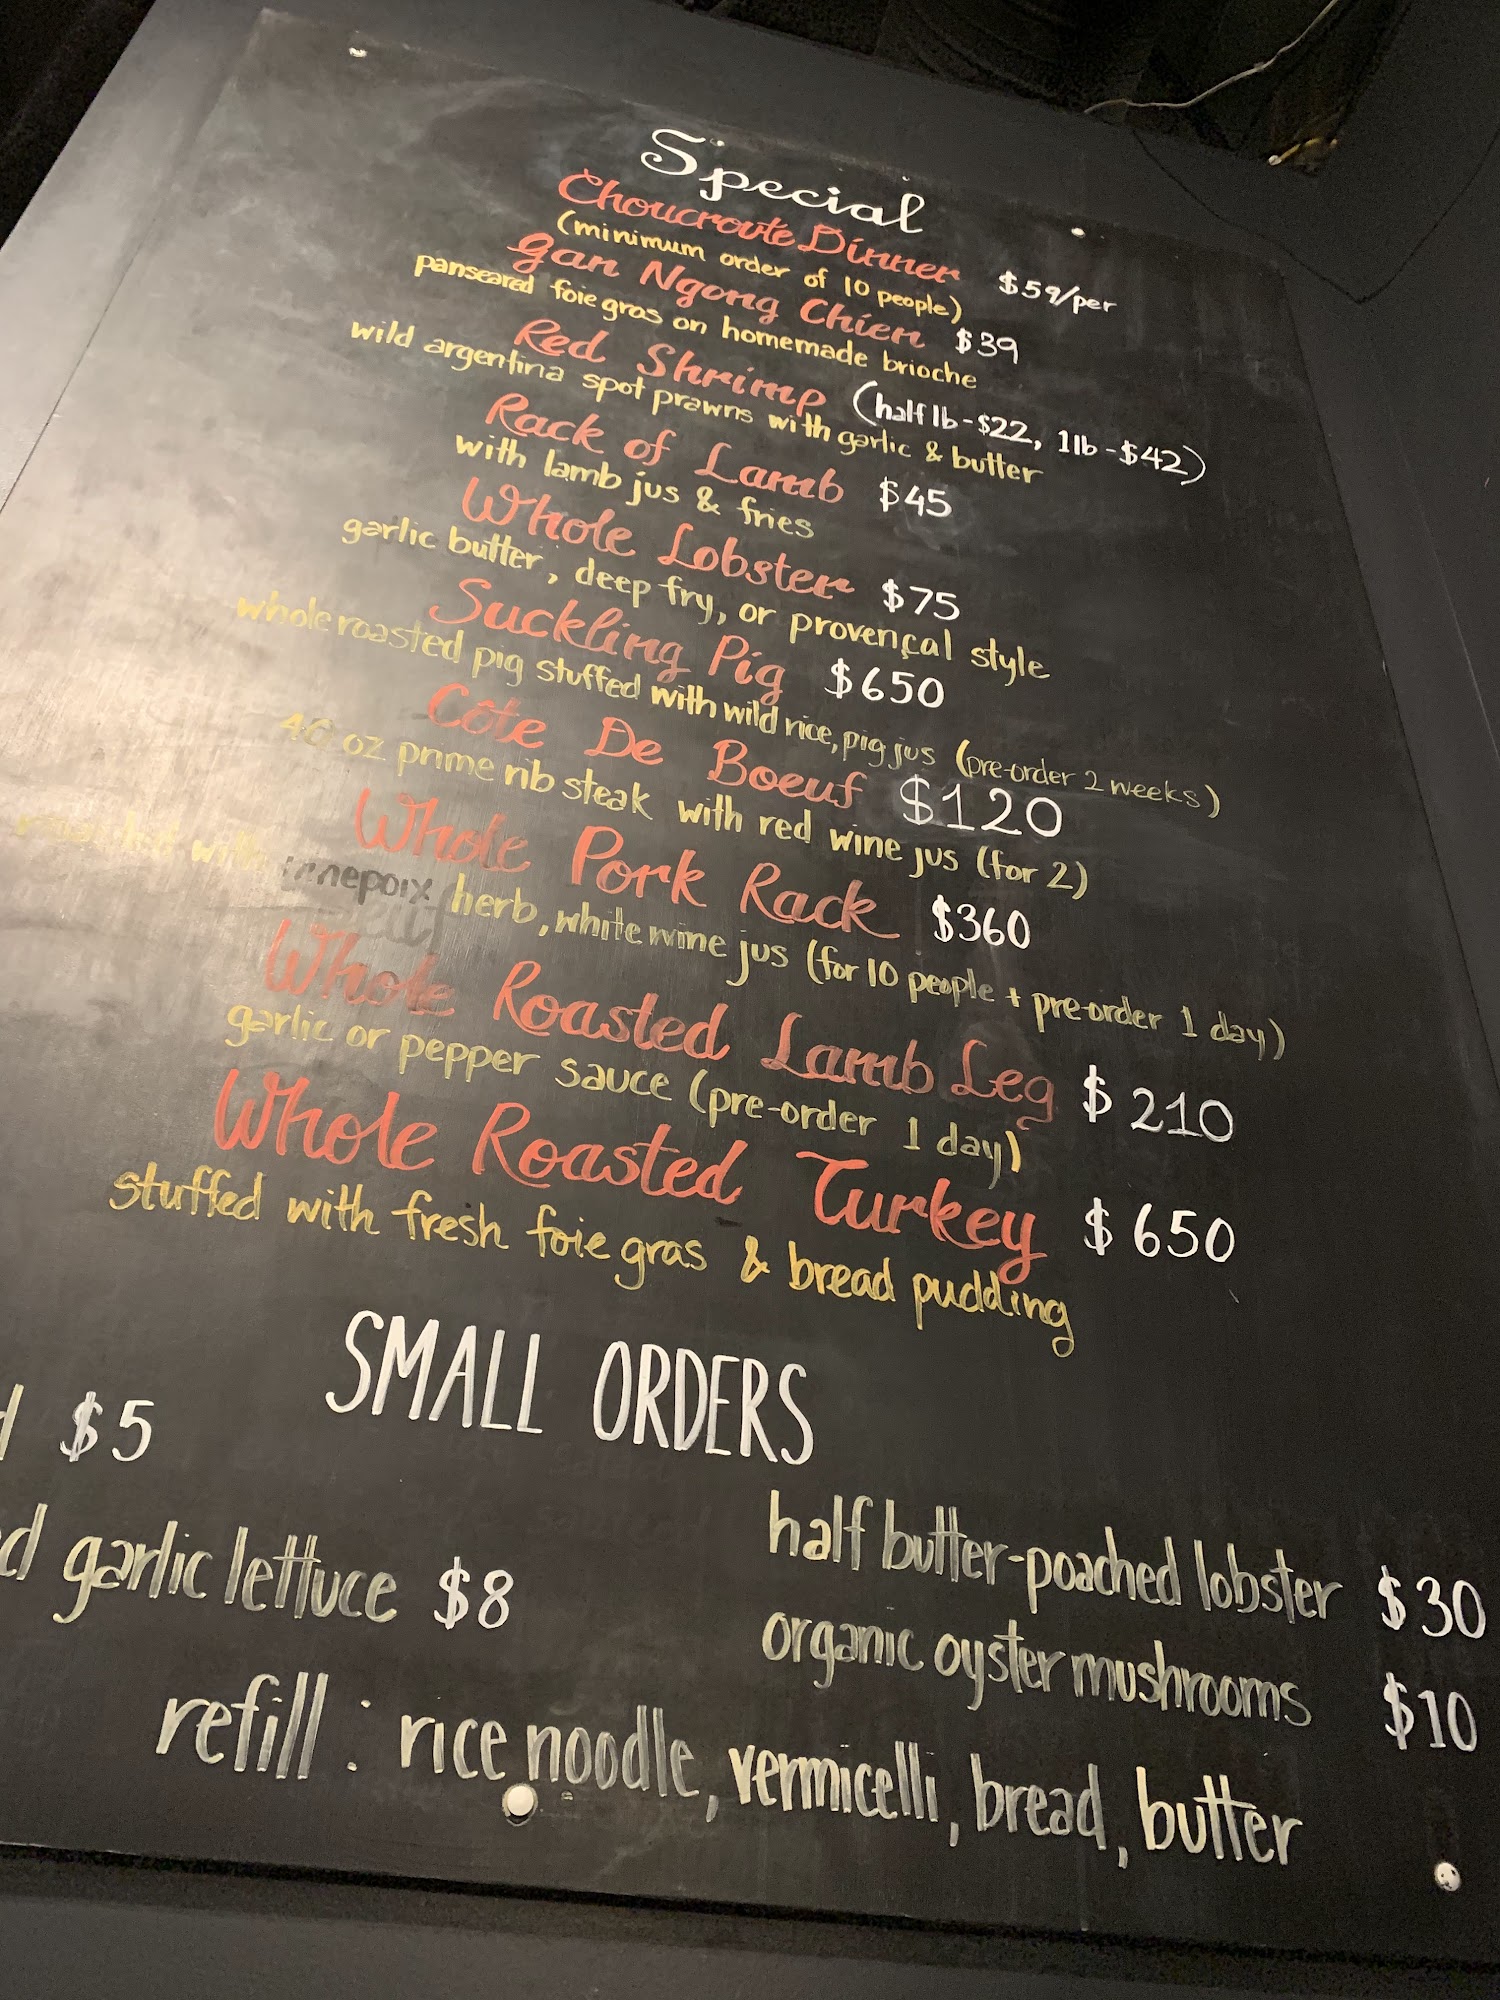 Special
Choucroute Dinner $59/per
(minimum order of 10 people)
Gan Ngong Chien $39
panseared foie gras on homemade brioche
Red Shrimp (half lb - $22, 1lb - $42)
wild argentina spot prawns with garlic & butter
Rack of Lamb $45
with lamb jus & fries
Whole Lobster $75
garlic butter, deep fry, or provençal style
Suckling Pig $650
whole roasted pig stuffed with wild rice, pig jus (pre-order 2 weeks)
Côte De Boeuf $120
40 oz prime rib steak with red wine jus (for 2)
Whole Pork Rack $360
with herb, white wine jus (for 10 people + pre-order 1 day)
Whole Roasted Lamb Leg $210
garlic or pepper sauce (pre-order 1 day)
Whole Roasted Turkey $650
stuffed with fresh foie gras & bread pudding
SMALL ORDERS
$5
garlic lettuce $8
half butter-poached lobster $30
organic oyster mushrooms $10
refill : rice noodle, vermicelli, bread, butter